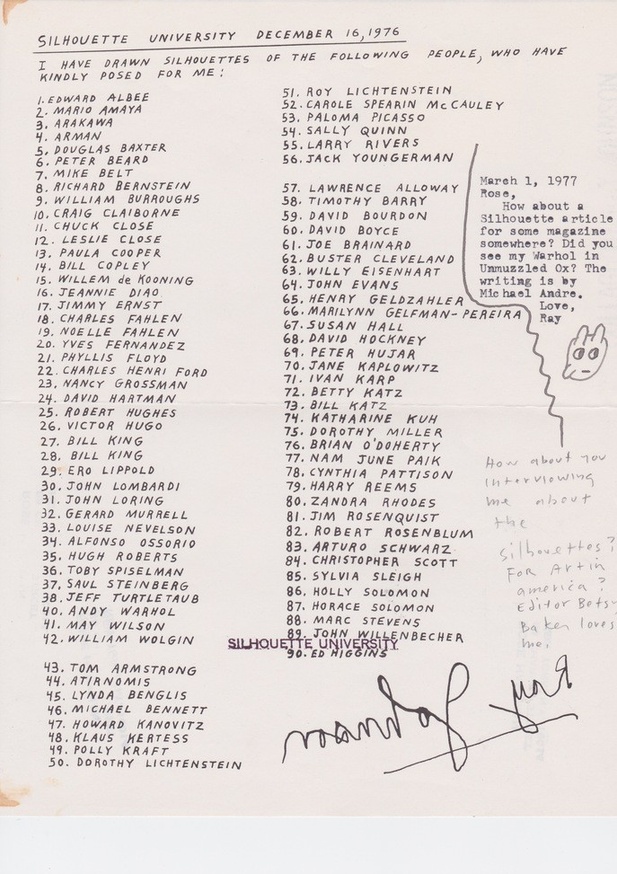 SILHOUETTE UNIVERSITY DECEMBER 16, 1976
I HAVE DRAWN SILHOUETTES OF THE FOLLOWING PEOPLE, WHO HAVE
KINDLY POSED FOR ME:
1. EDWARD ALBEE
2. MARIO AMAYA
3. ARAKAWA
4. ARMAN
5. DOUGLAS BAXTER
6. PETER BEARD
7. MIKE BELT
8. RICHARD BERNSTEIN
9. WILLIAM BURROUGHS
10. CRAIG CLAIBORNE
11. CHUCK CLOSE
12. LESLIE CLOSE
13. PAULA COOPER
14. BILL COPLEY
15. WILLEM de KOONING
16. JEANNIE DIAO
17. JIMMY ERNST
18. CHARLES FAHLEN
19. NOELLE FAHLEN
20. YVES FERNANDEZ
21. PHYLLIS FLOYD
22. CHARLES HENRI FORD
23. NANCY GROSSMAN
24. DAVID HARTMAN
25. ROBERT HUGHES
26. VICTOR HUGO
27. BILL KING
28. BILL KING
29. ERO LIPPOLD
30. JOHN LOMBARDI
31. JOHN LORING
32. GERARD MURRELL
33. LOUISE NEVELSON
34. ALFONSO OSSORIO
35. HUGH ROBERTS
36. TOBY SPISELMAN
37. SAUL STEINBERG
38. JEFF TURTLETAUB
40. ANDY WARHOL
41. MAY WILSON
42. WILLIAM WOLGIN
43. TOM ARMSTRONG
44. ATIRNOMIS
45. LYNDA BENGLIS
46. MICHAEL BENNETT
47. HOWARD KANOVITZ
48. KLAUS KERTESS
49. POLLY KRAFT
50. DOROTHY LICHTENSTEIN
51. ROY LICHTENSTEIN
52. CAROLE SPEARIN McCAULEY
53. PALOMA PICASSO
54. SALLY QUINN
55. LARRY RIVERS
56. JACK YOUNGERMAN
57. LAWRENCE ALLOWAY
58. TIMOTHY BARRY
59. DAVID BOURDON
60. DAVID BOYCE
61. JOE BRAINARD
62. BUSTER CLEVELAND
63. WILLY EISENHART
64. JOHN EVANS
65. HENRY GELDZAHLER
66. MARILYNN GELFMAN-PEREIRA
67. SUSAN HALL
68. DAVID HOCKNEY
69. PETER HUJAR
70. JANE KAPLOWITZ
71. IVAN KARP
72. BETTY KATZ
73. BILL KATZ
74. KATHARINE KUH
75. DOROTHY MILLER
76. BRIAN O'DOHERTY
77. NAM JUNE PAIK
78. CYNTHIA PATTISON
79. HARRY REEMS
80. ZANDRA RHODES
81. JIM ROSENQUIST
82. ROBERT ROSENBLUM
83. ARTURO SCHWARZ
84. CHRISTOPHER SCOTT
85. SYLVIA SLEIGH
86. HOLLY SOLOMON
87. HORACE SOLOMON
88. MARC STEVENS
89. JOHN WILLENBECHER
SILHOUETTE UNIVERSITY
90. ED HIGGINS
March 1, 1977
Rose,
How about a
Silhouette article
for some magazine
somewhere? Did you
see my Warhol in
Unmuzzled Ox? The
writing is by
Michael Andre.
Love,
Ray
How about you
interviewing
me about
the
silhouettes?
For Art in
america?
Editor Betsy
Baker loves
me.